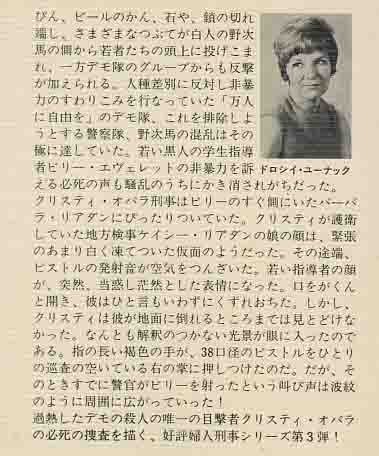 びん、ビールのかん、石や、鎖の切れ
端し、さまざまなつぶてが白人の野次
馬の側から若者たちの頭上に投げこま
れ、一方デモ隊のグループからも反撃
が加えられる。人種差別に反対し非暴
力のすわりこみを行なっていた「万人
に自由を」のデモ隊、これを排除しよ
うとする警察隊、野次馬の混乱はその
極に達していた。若い黒人の学生指導
者ビリー・エヴェレットの非暴力を訴
える必死の声も騒乱のうちにかき消されがちだった。
クリスティ・オパラ刑事はビリーのすぐ側にいたバーバ
ラ・リアダンにぴったりついていた。クリスティが護衛
していた地方検事ケイシー・リアダンの娘の顔は、緊張
のあまり白く凍てついた仮面のようだった。その途端、
ピストルの発射音が空気をつんざいた。若い指導者の顔
が、突然、当惑し茫然とした表情になった。口をがくん
と開き、彼はひと言もいわずにくずれおちた。しかし、
クリスティは彼が地面に倒れるところまでは見とどけな
かった。なんとも解釈のつかない光景が眼に入ったので
ある。指の長い褐色の手が、38口径のピストルをひとり
の巡査の空いている右の掌に押しつけたのだ。だが、そ
のときすでに警官がビリーを射ったという叫び声は波紋
のように周囲に広がっていった!
過熱したデモの殺人の唯一の目撃者クリスティ・オパラ
の必死の捜査を描く、好評婦人刑事シリーズ第3弾!
ドロシイ・ユーナック